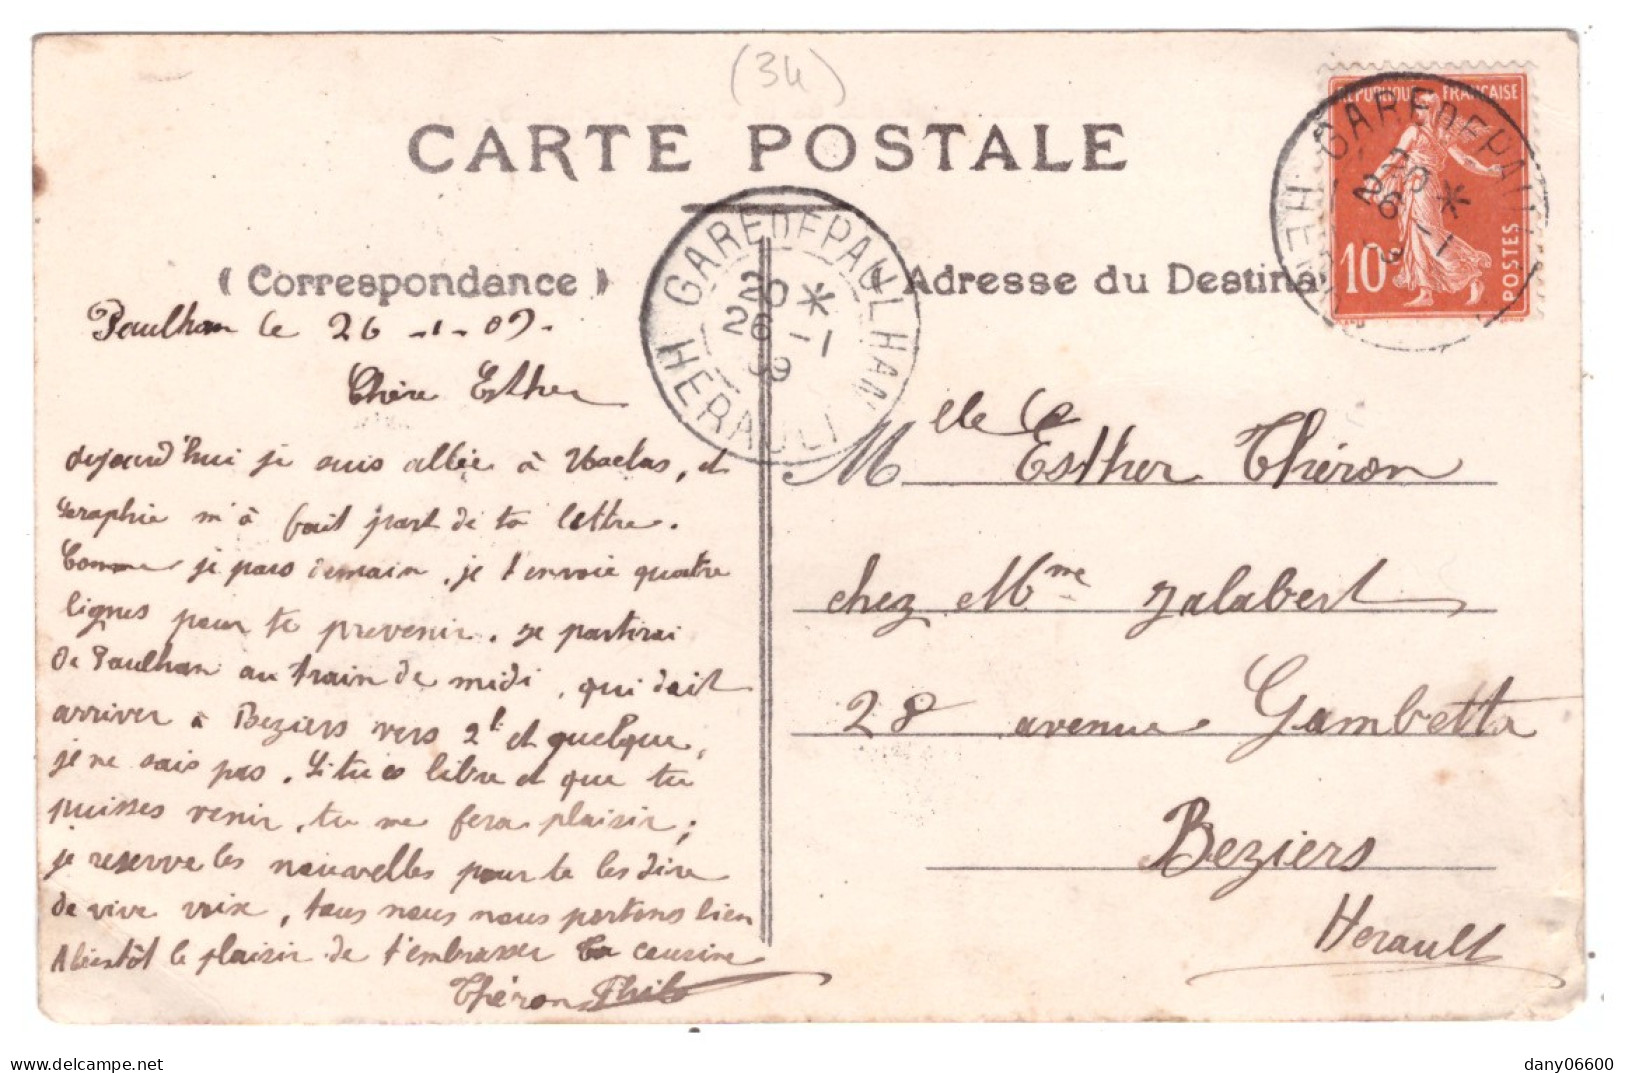 (34)
CARTE POSTALE
REPUBLIQUE FRANÇAISE
10c
POSTES
GARE DE PAULHAN
20 *
26 - 1
09
HERAULT
(Correspondance)
Adresse du Destina
Paulhan le 26 -1- 09-
Chère Esther
Aujourd'hui je suis allée à Usclas, et
Seraphie m'à fait part de ta lettre.
Comme je pars demain, je t'envoie quatre
lignes pour te prevenir. Je partirai
de Paulhan au train de midi, qui doit
arriver à Beziers vers 2h et quelque,
je ne sais pas. Si tu es libre et que tu
puisses venir, tu me fera plaisir;
je reserve les nouvelles pour te les dire
de vive voix, tous nous nous portons bien
A bientôt le plaisir de t'embrasser Ta cousine
Théron
Mlle
Esther Théron
chez Mme Jalabert
28 avenue Gambetta
Beziers
Herault
delcampe.net
dany06600